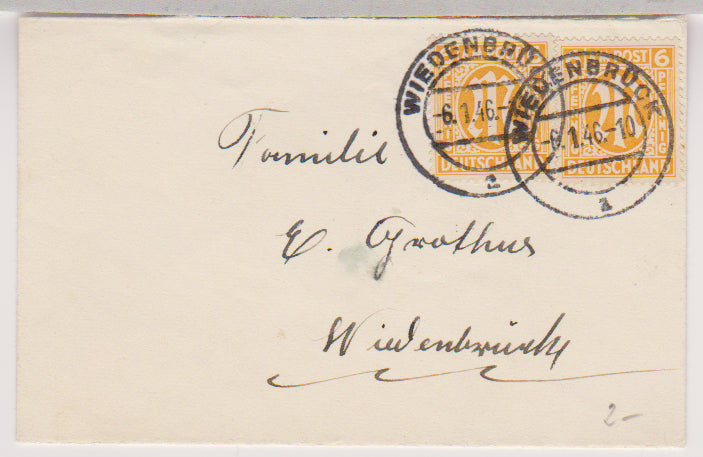 WIEDENBRÜ
-6.1.46.-
a
DEUTSCHLAND
WIEDENBRÜCK
-6.1.46.-10
a
POST 6
PFENNIG
DEUTSCHLAND
Familie
E. Grothus
Wiedenbrück
2-